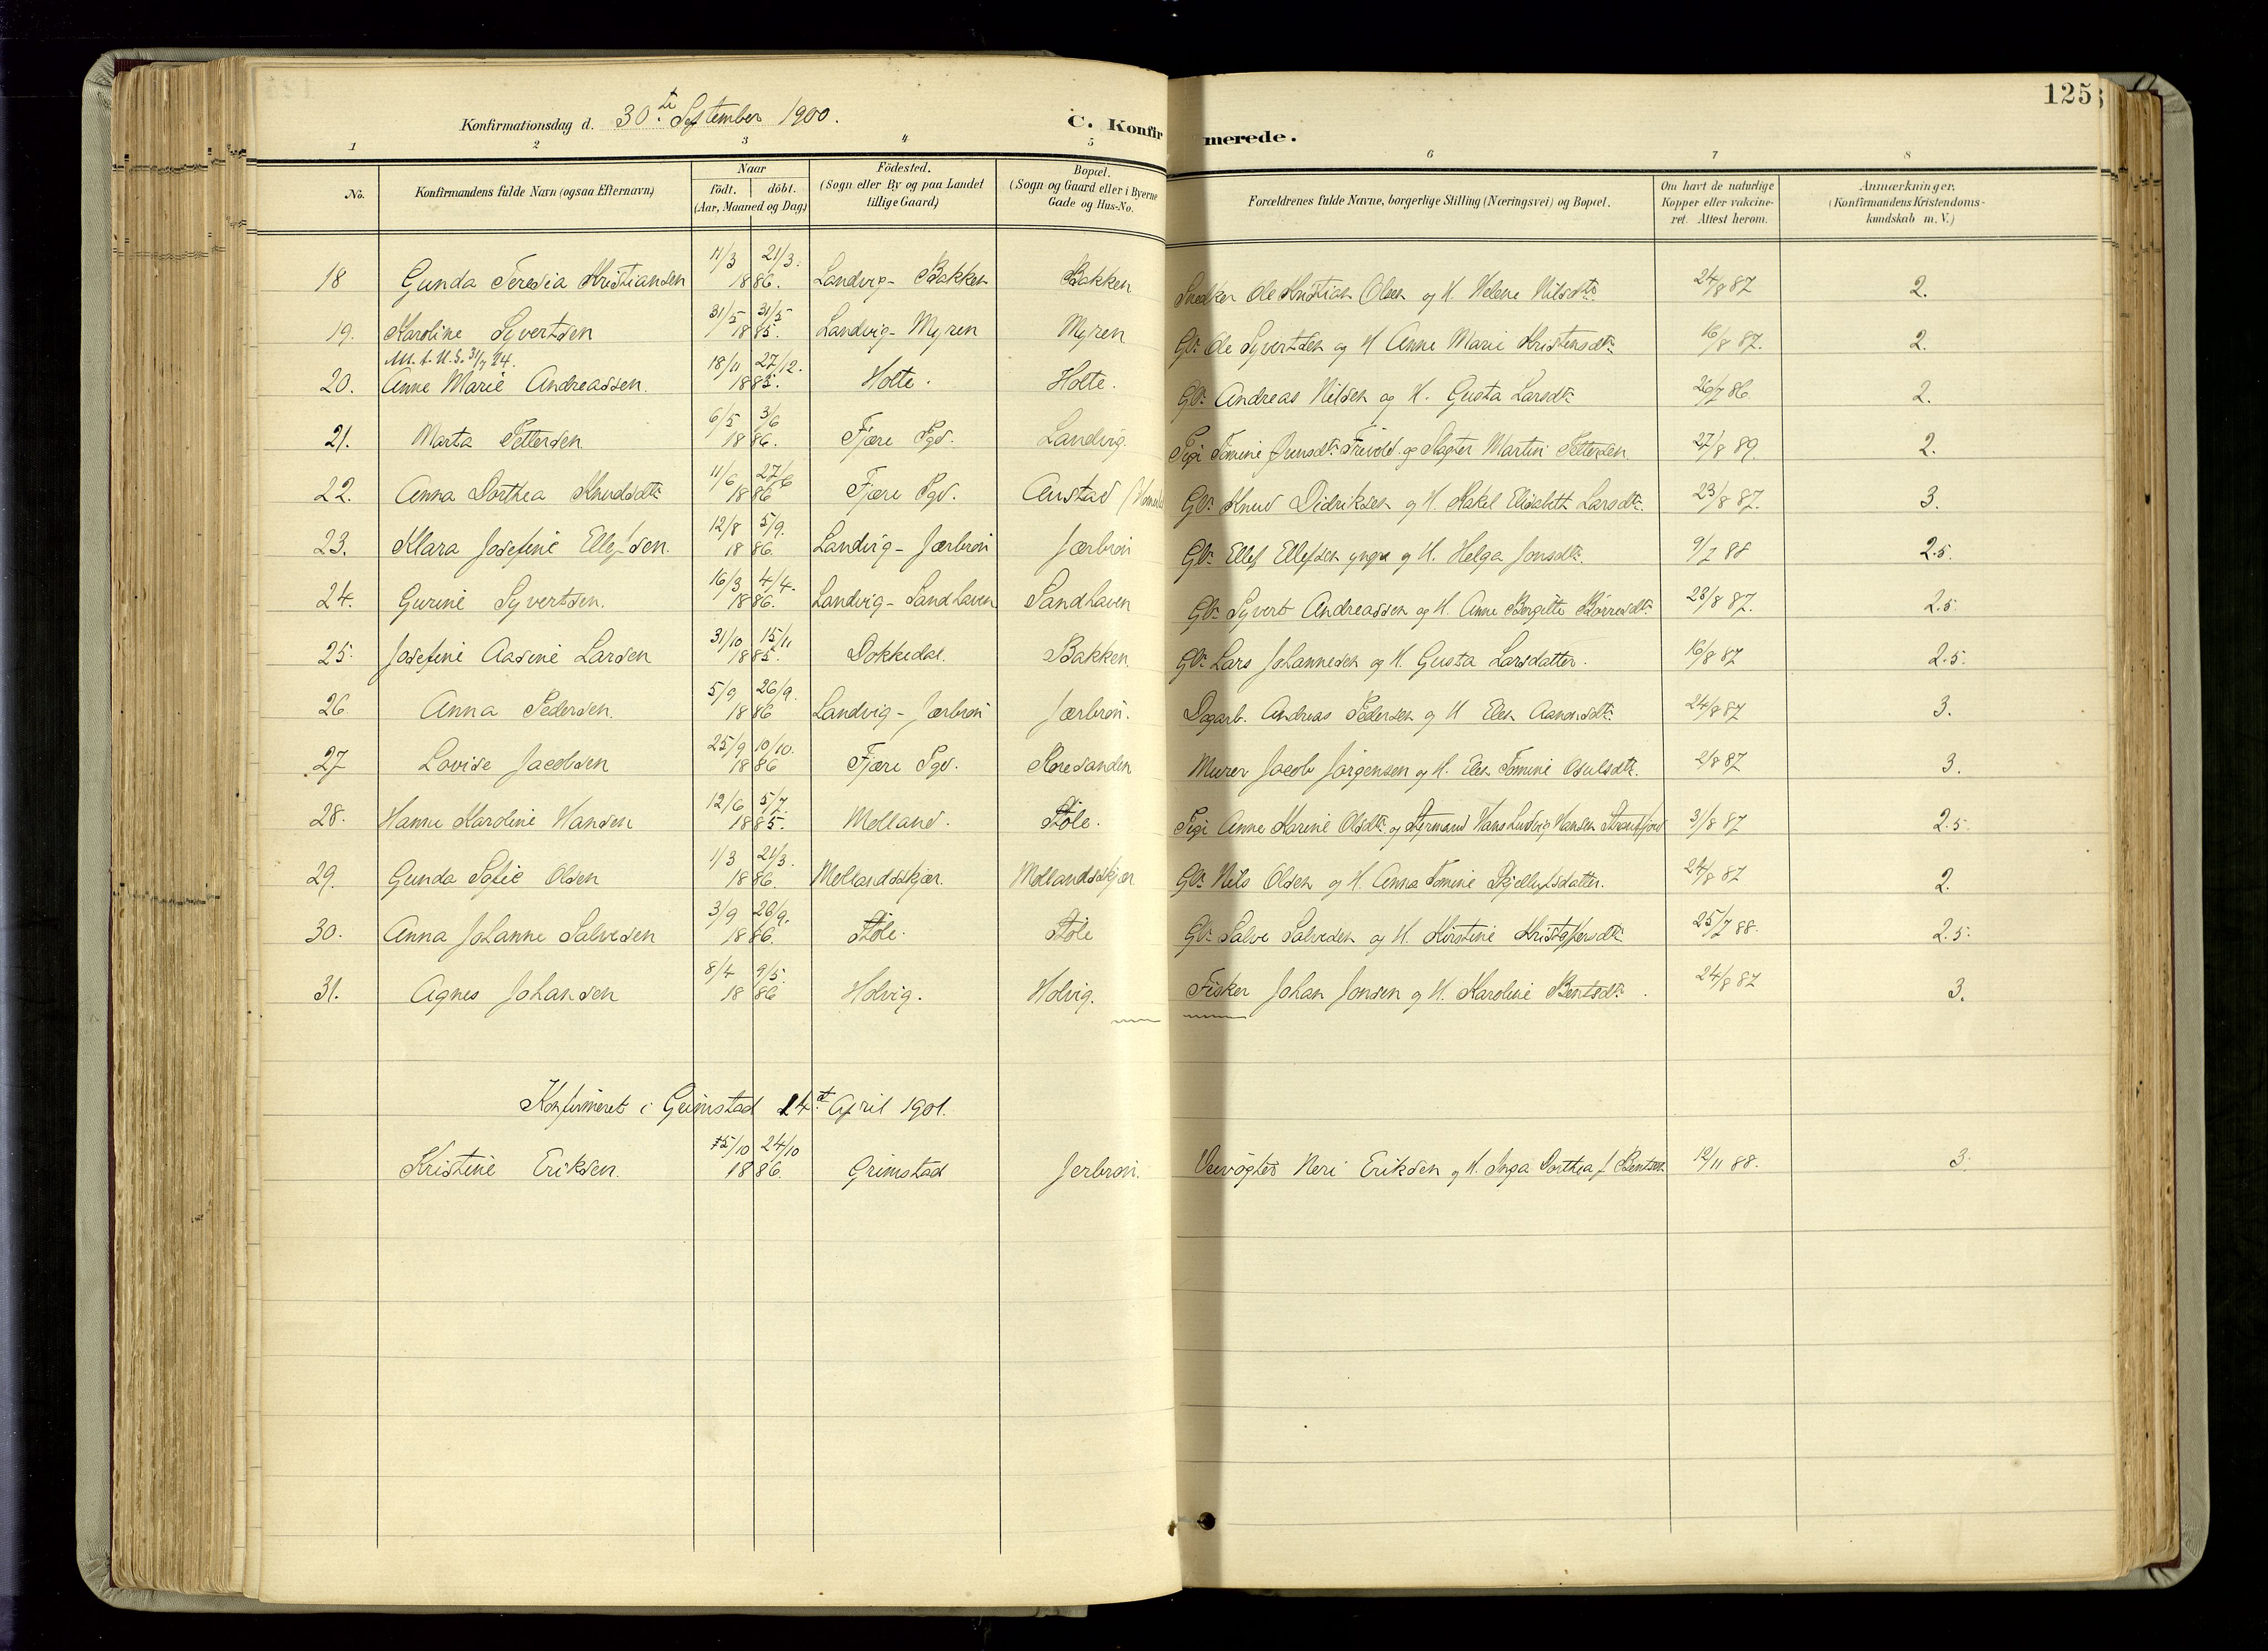 125
Konfirmationsdag d. 30.te September 1900.
C. Konfirmerede.
1 2 3 4 5 6 7 8
No. Konfirmandens fulde Navn (ogsaa Efternavn) Naar födt. döbt. (Aar, Maaned og Dag) Födested. (Sogn eller By og paa Landet tillige Gaard) Bopæl. (Sogn og Gaard eller i Byerne Gade og Hus-No. Forældrenes fulde Navne, borgerlige Stilling (Næringsvei) og Bopæl. Om havt de naturlige Kopper eller vakcineret. Attest herom. Anmærkninger, (Konfirmandens Kristendomskundskab m. V.)
18 Gunda Teresia Kristiansen 11/3 21/3. 1886. Landvig - Bakken Bakken Snedker Ole Kristian Olsen og H. Helene Nilsdtr. 24/8 87 2.
19. Karoline Syvertsen 31/5 31/5 1885. Landvig - Myren Myren Gbr. Ole Syvertsen og H Anne Marie Kristensdtr. 16/8 87. 2.
Att. t. U. S. 31/7 24.
20. Anne Marie Andreassen. 18/11 27/12. 1885. Holte. Holte. Gbr. Andreas Nilsen og H. Gusta Larsdtr. 26/7 86. 2.
21. Marta Pettersen. 6/5 3/6 1886. Fjære Pgd. Landvig. Pige Tomine Jensdtr. Frivold og Slagter Martin Pettersen. 27/8 89. 2.
22. Anna Dorthea Knudsdtr. 11/6 27/6 1886 Fjære Pgd. Austad Gbr. Knud Didriksen og H. Rakel Elisabeth Larsdtr. 23/8 87. 3.
23. Klara Josefine Ellefsen. 12/8 5/9. 1886. Landvig - Jærbroen Jærbroen Gbr. Ellef Ellefsen yngre og H. Helga Jonsdtr. 9/7 88 2.5.
24. Gurine Syvertsen. 16/3 4/4. 1886. Landvig - Sandhaven Sandhaven Gbr. Syvert Andreassen og H. Anne Bergitte Börresdtr. 23/8 87. 2.5.
25. Josefine Aasine Larsen 31/10 15/11 1885. Dokkedal. Bakken Gbr. Lars Johannesen og H. Gusta Larsdatter. 16/8 87 2.5.
26. Anna Pedersen. 5/9 26/9. 1886 Landvig - Jærbroen Jærbroen. Dagarb. Andreas Pedersen og H Elen Aanonsdtr. 24/8 87 3.
27 Lovise Jacobsen 25/9 10/10. 1886 Fjære Pgd. Roresanden Murer Jacob Jörgensen og H. Elen Tomine Osulsdtr. 2/8 87 3.
28. Hanne Karoline Hansen 12/6 5/7. 1885. Molland. Støle. Pige Anne Karine Olsdtr. og Styrmand Hans Ludvig Hansen 3/8 87 2.5
29. Gunda Sofie Olsen 1/3 21/3. 1886. Mollandsskjær. Mollandsskjær Gbr. Nils Olsen og H. Anna Tomine Skjellufsdatter. 24/8 87 2.
30. Anna Johanne Salvesen 3/9 26/9. 1886. Støle. Støle Gbr. Salve Salvesen og H. Kirstine Kristofersdtr. 25/7 88. 2.5.
31. Agnes Johansen 8/4 9/5. 1886 Holvig. Holvig. Fisker Johan Jonsen og H. Karoline Bentsdtr. 24/8 87 3.
Konfirmeret i Grimstad 14de April 1901.
Kristine Eriksen. 15/10 24/10 1886. Grimstad Jerbroen. Veivogter Neri Eriksen og H. Inga Dorthea f. Bentsen 12/11 88. 3.